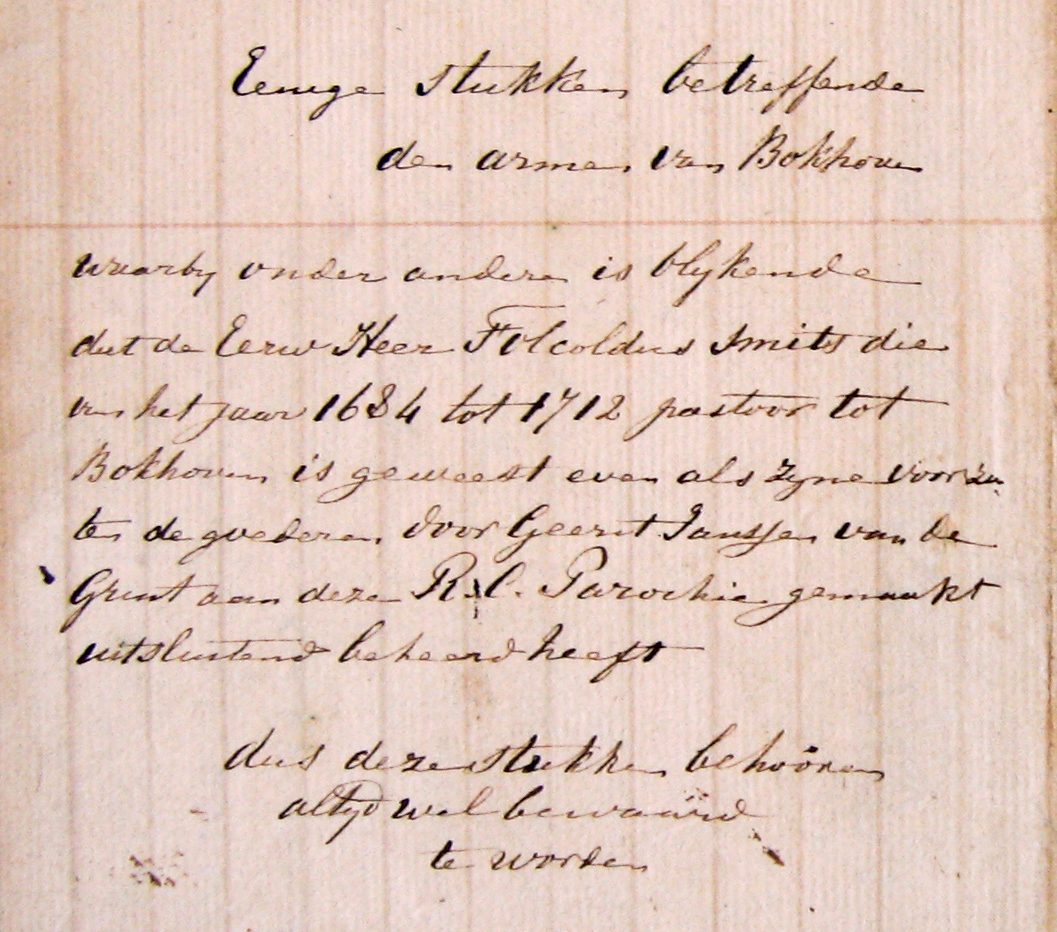 Eenige stukken betreffende
den armen van Bokhoven
waarby onder andere is blykende
dat de Eerw Heer Folcoldus Smits die
van het jaar 1684 tot 1712 pastoor tot
Bokhoven is geweest even als zyne voorza
ten de goederen door Geerit Janssen van de
Grint aan deze R.C. Parochie gemaakt
uitsluitend beheerd heeft
dus deze stukken behooren
altyd wel bewaard
te worden